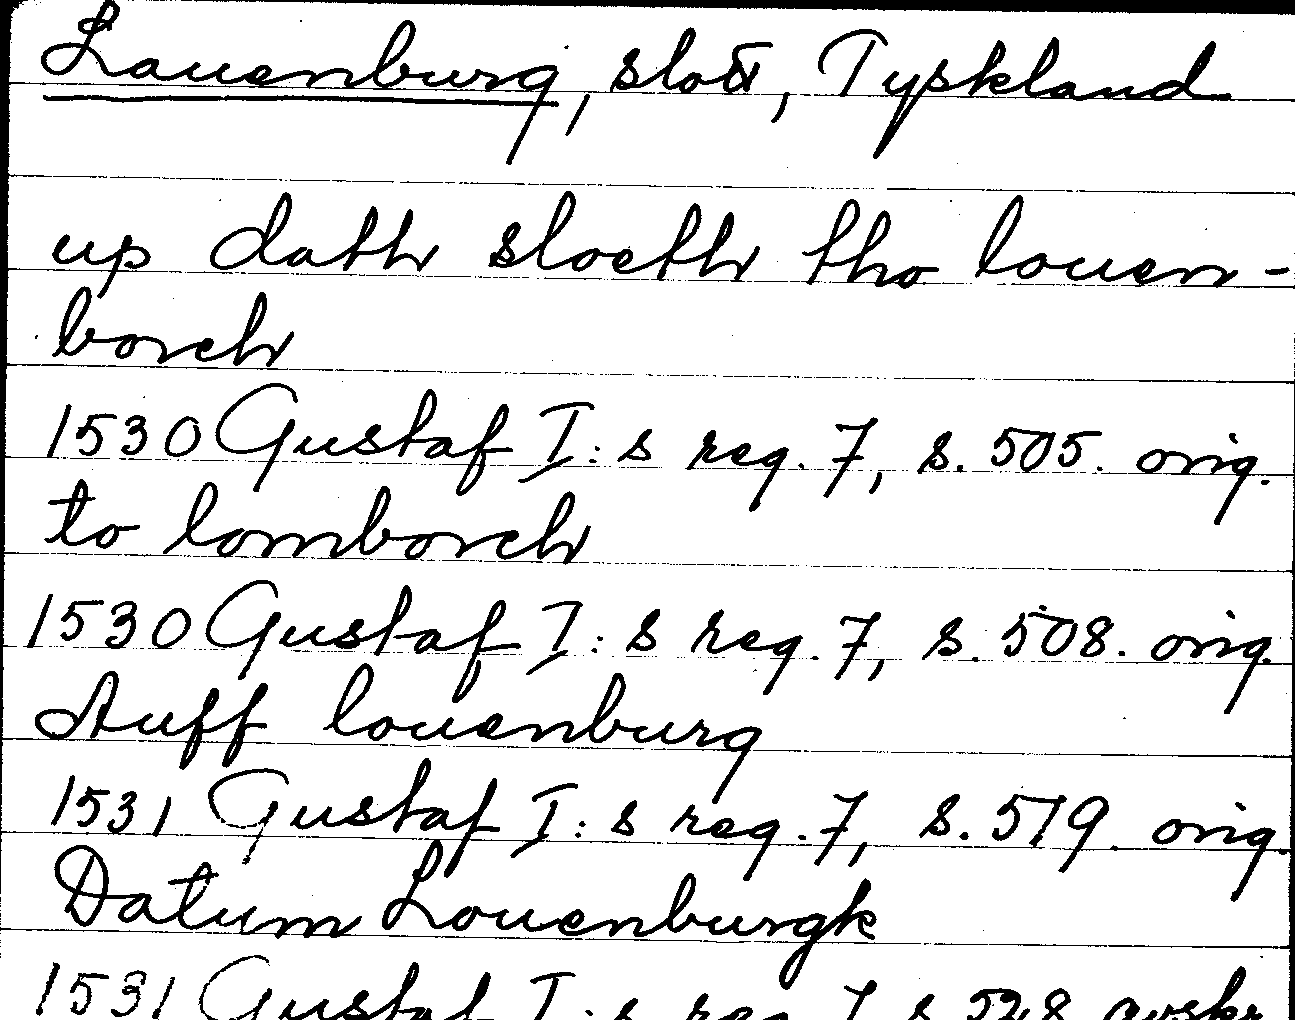 Lauenburg, slott, Tyskland
up dath sloeth tho louen-
borch
1530 Gustaf I:s reg. 7, s. 505. orig.
to lomborch
1530 Gustaf I:s reg. 7, s. 508. orig.
Auff louenburg
1531 Gustaf I:s reg. 7, s. 519. orig.
Datum Louenburgk
1531 Gustaf I:s reg. 7 s 528 avskr